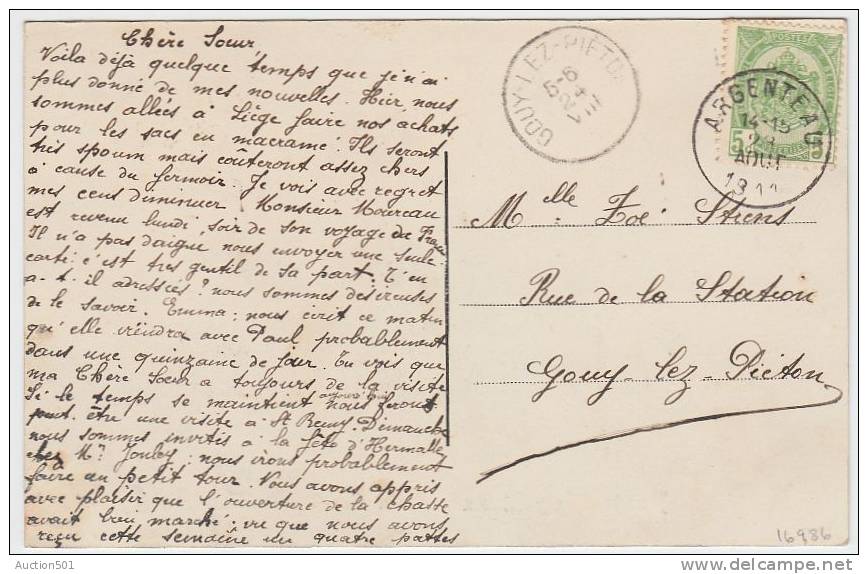 Chère Soeur
Voila déjà quelque temps que je n'ai
plus donné de mes nouvelles. Hier, nous
sommes allées à Liège faire nos achats
pour les sacs en macramé. Ils seront
très mais coûteront assez chers
à cause du fermoir. Je vois avec regret
mes cens diminuer. Monsieur Moureau
est revenu lundi soir de son voyage de
Il n'a pas daigné nous envoyer une seule
carte: c'est très gentil de sa part. T'en
a-t-il adressées? nous sommes désireuses
de le savoir. Emma; nous écrit ce matin
qu'elle viendra avec Paul probablement
dans une quinzaine de jour. Tu vois que
ma Chère Soeur a toujours de la visite
Si le temps se maintient nous ferons
aujourd'hui
peut-être une visite à St Remy. Dimanche
nous sommes invités à la fête d'Hermalle
chez Mr ; nous irons probablement
faire un petit tour. Nous avons appris
avec plaisir que l'ouverture de la chasse
avait bien marché; vu que nous avons
reçu cette semaine un quatre pattes
GOUY-LEZ-PIÉTON
6
5-6
24
VIII
POSTES
5 5
ARGENTEAU
14-15
23
AOUT
1911
Melle Zoé Strens
Rue de la Station
Gouy-lez-Piéton
16986
Auction501
delcampe.net